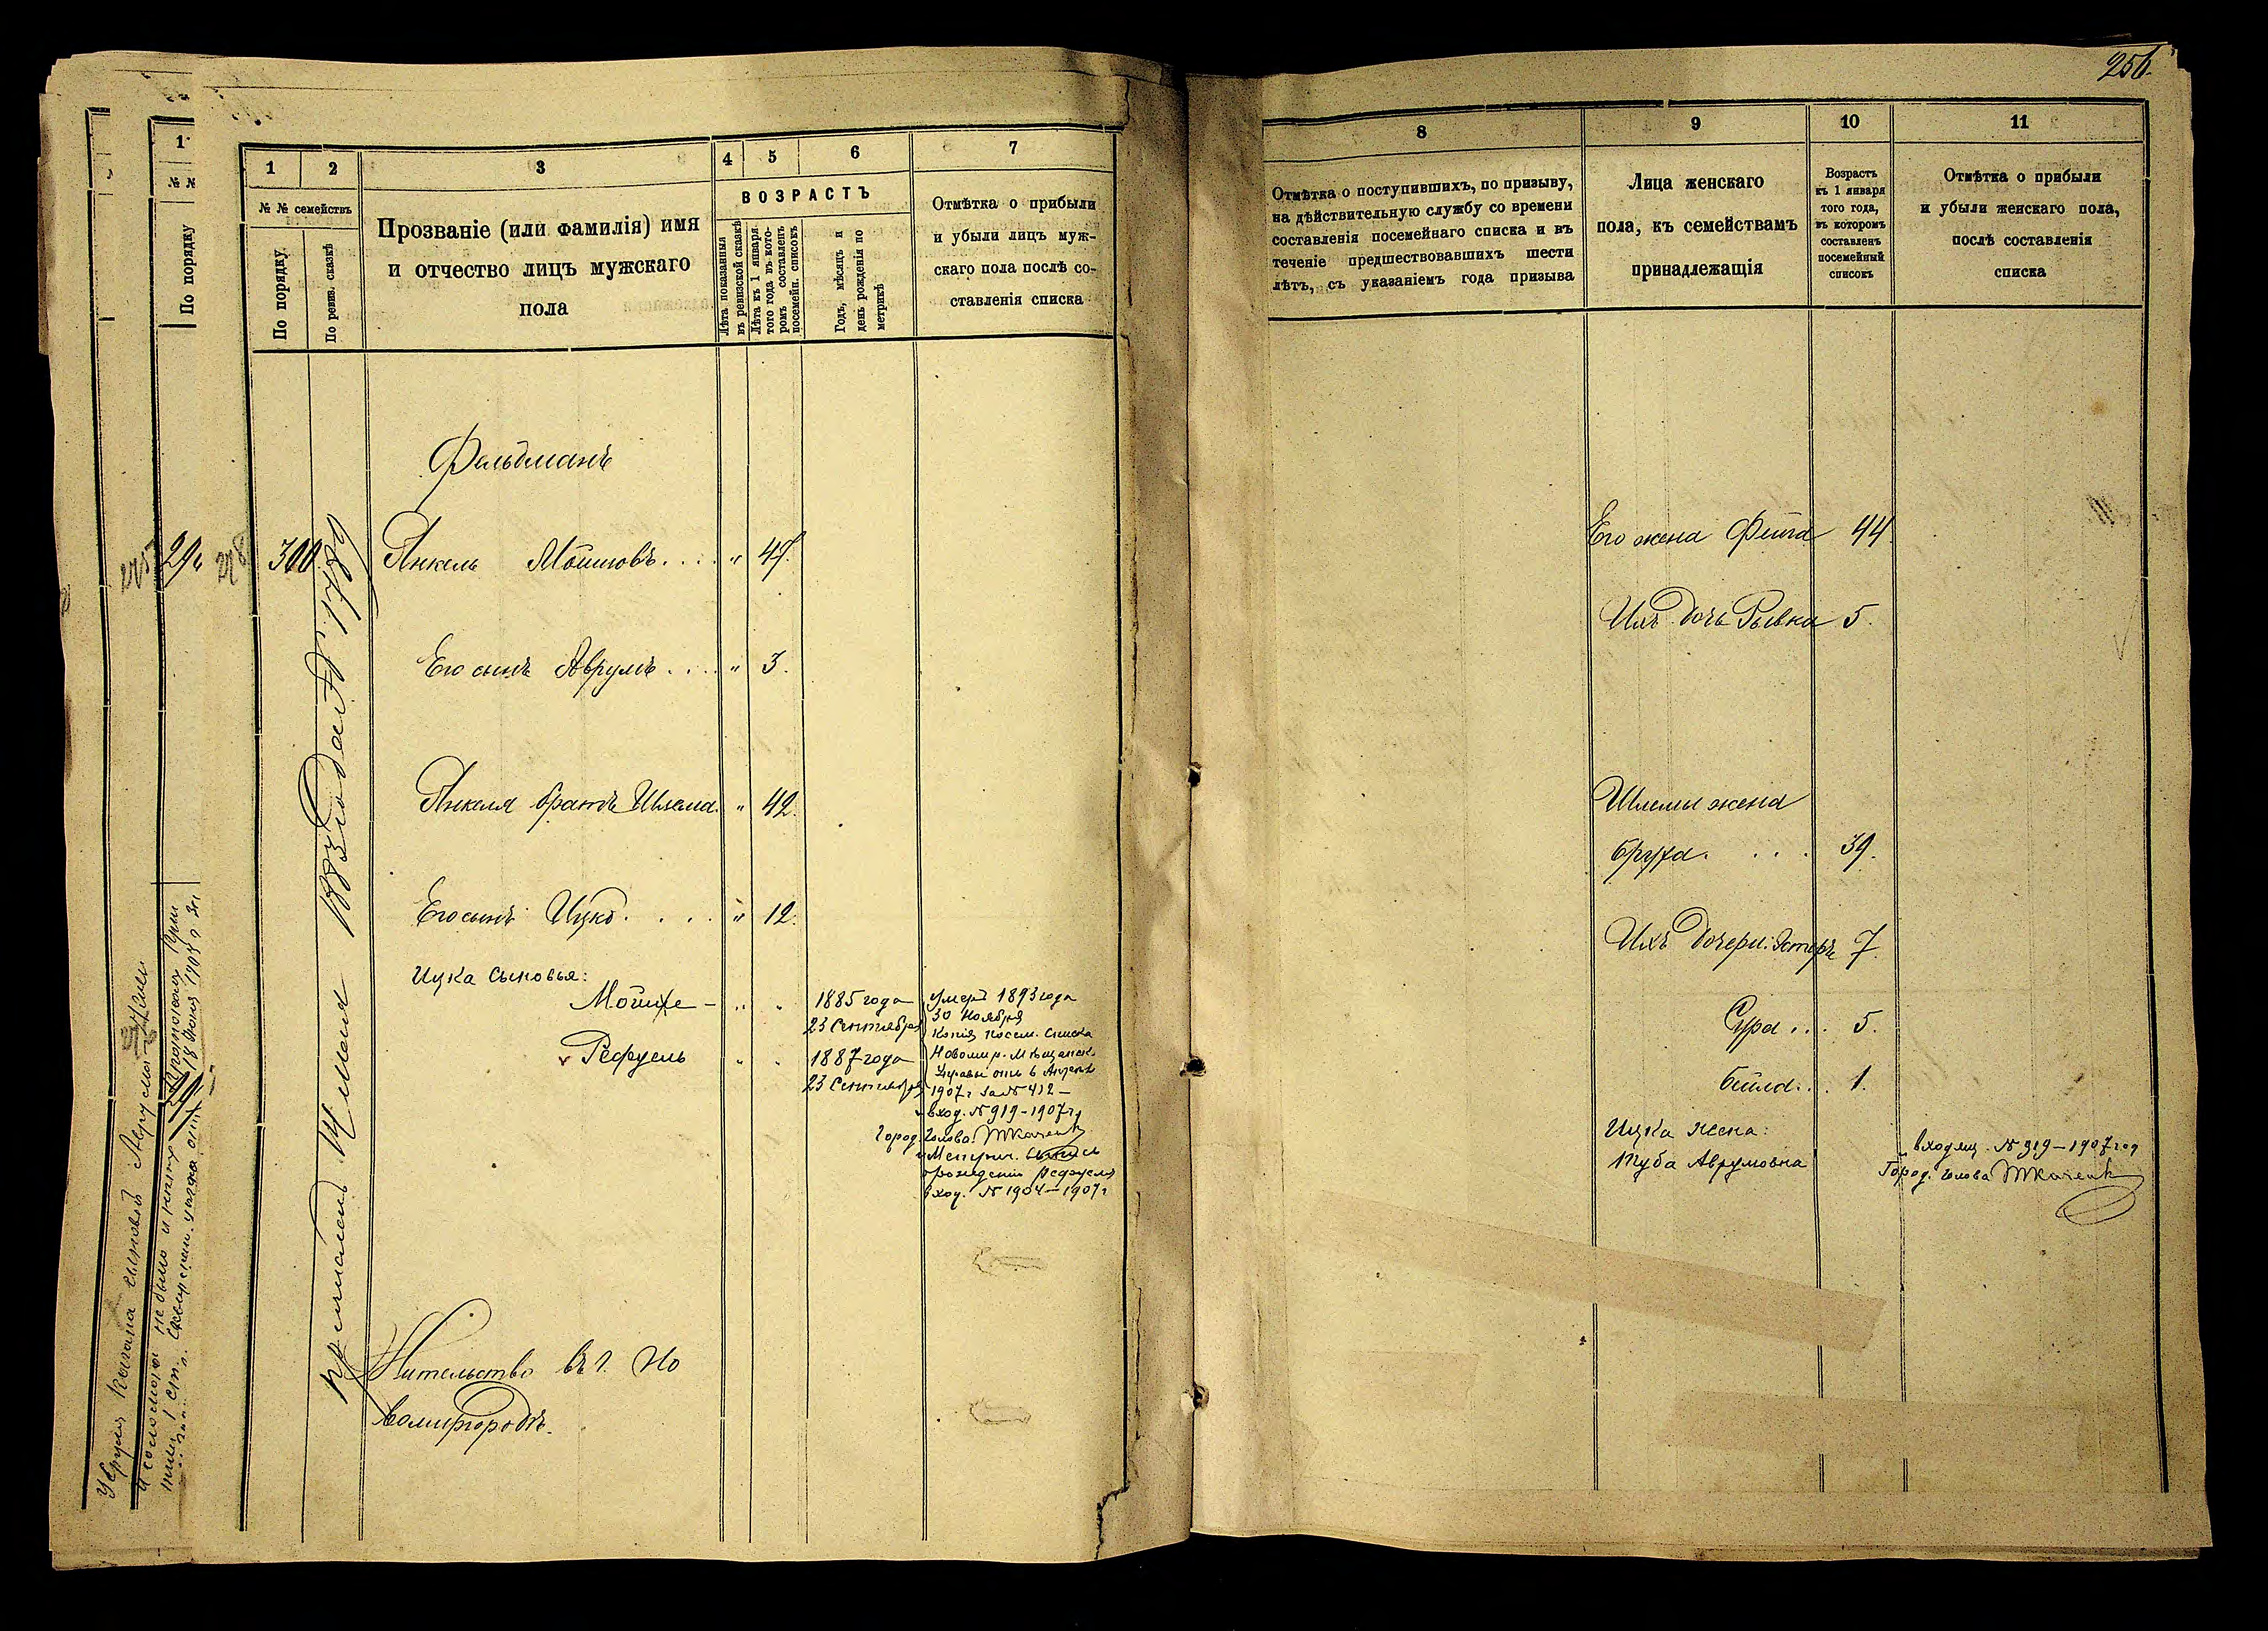 256.
1
№ №
По порядку
1
2
3
4
5
6
7
№ № семействъ
По порядку
По ревиз. сказкѣ
Прозваніе (или фамилія) имя
и отчество лицъ мужскаго
пола
ВОЗРАСТЪ
Лѣта показанныя
въ ревизской сказкѣ
Лѣта къ 1 января
того года въ кото-
ромъ составленъ
посемейн. списокъ
Годъ, мѣсяцъ и
день рожденія по
метрикѣ
Отмѣтка о прибыли
и убыли лицъ муж-
скаго пола послѣ со-
ставленія списка
Фельдманъ
300.
Янкель Мошковъ.... " 47.
Его сынъ Аврумъ.... " 3.
Янкеля братъ Шлема. " 42.
Его сынъ Ицко.... " 12.
Ицка сыновья:
Мошке - " "
1885 года
23 Сентября
умеръ 1893 года
30 Ноября
Рефуель " "
1887 года
23 Сентября
Копія посем. списка
Новомир. Мѣщанск.
Управы отъ 6 Апреля
1907 г за № 412 -
вход. № 919-1907 г.
Город. Голова Ткаченко
рожденіи Рефуеля
вход. № 1904-1907 г
Жительство въ г. Но
вомиргородѣ.
14 мая 1883 года № 1789
8
9
10
11
Отмѣтка о поступившихъ, по призыву,
на дѣйствительную службу со времени
составленія посемейнаго списка и въ
теченіе предшествовавшихъ шести
лѣтъ, съ указаніемъ года призыва
Лица женскаго
пола, къ семействамъ
принадлежащія
Возрастъ
къ 1 января
того года,
въ которомъ
составленъ
посемейный
списокъ
Отмѣтка о прибыли
и убыли женскаго пола,
послѣ составленія
списка
Его жена Фейга 44.
Ихъ дочь Рывка 5.
Шлемы жена
Бруха.... 39.
Ихъ дочери: Эстеръ 7.
Сура... 5.
Бейла... 1.
Ицка жена:
Туба Аврумовна
входящ. № 919-1907 год
Город. Голова Ткаченко